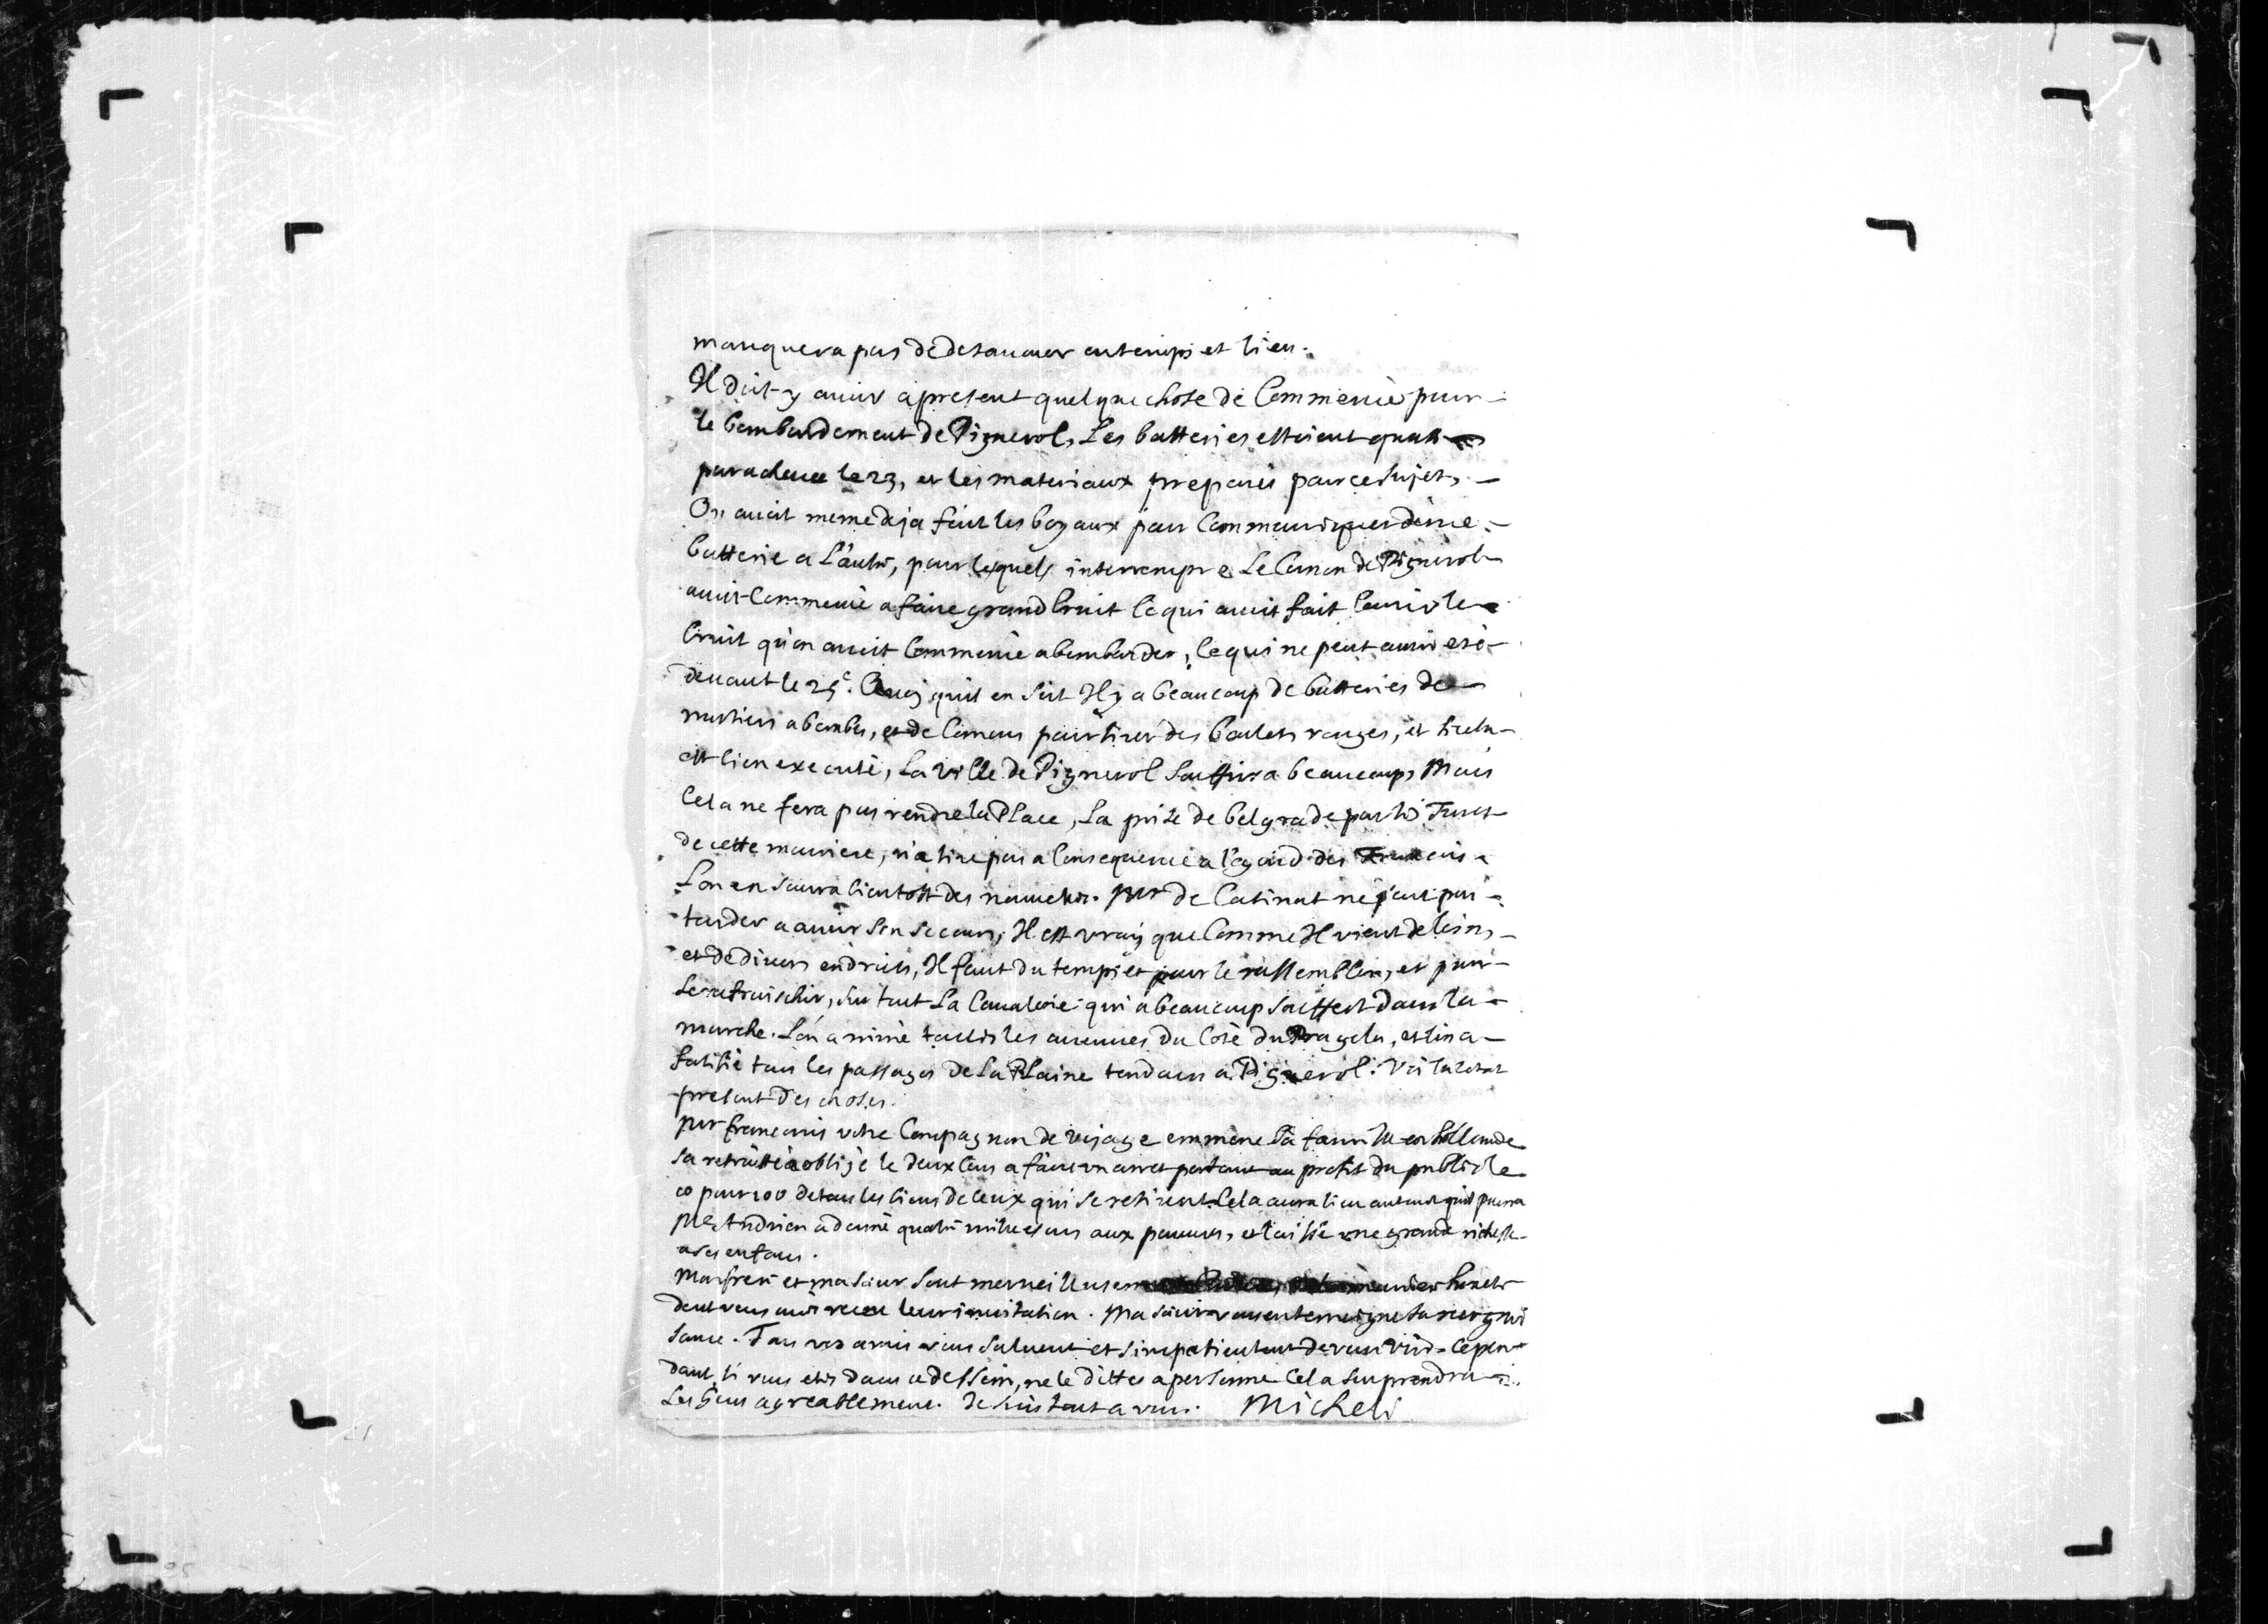 manquera pas de detacher en temps et lieu.
Il doit y avoir apresent quelque chose de Commencè pour
le bombardement de Pignerol, Les batteries estoient quasi
parachevee le 23, et les materiaux preparés pour ce sujet,
On avoit meme deja fait les boyaux pour Communiquer d'une
batterie a l'autre, pour lesquels interrompre Le Canon de Pignerol
avoit Commencè a faire grand bruit Ce qui avoit fait Courir le
bruit qu'on avoit Commencè a bombarder, Ce qui ne peut avoir esté
devant le 25e. Quoy quil en soit Il y a beaucoup de batteries de
mortiers a bombes, et de Canons pour tirer des boulets rouges, et si cela
est bien executé, La ville de Pignerol Souffrira beaucoup, Mais
Cela ne fera pas rendre la Place, La prise de belgrade par les Turcs
de cette maniere, n'a tire pas a Consequence a l'egard des Francois
L'on en saura bientost des nouvelles. Mr de Catinat ne peut pas
tarder a avoir son secours, Il est vray que Comme Il vient de loin,
et de divers endroits, Il faut du temps et pour le rassembler, et pour
le rafraischir, sur tout La Cavalerie qui a beaucoup souffert dans la
marche. L'on a miné touttes les avenues du Coté du Pragela, et lon a
fortifié tous les passages de La Plaine tendans a Pignerol. Voila letat
present des choses.
Mr francois votre Compagnon de voyage emmene Sa famille en hollande
Sa retraitte a obligè le deux Cens a faire un arret portant au profit du public le
10 pour 100 de tous les biens de Ceux qui se retirent. Cela aura lieu autant quil pourra
Mr Andrion a donné quatre mille escus aux pauvres, et laissé une grande richesse
a ses enfans.
Mon frere et ma Soeur Sont merveilleusem
dont vous avés receu leur invitation. Ma Soeur vous en temoigne sa recognoi
sance. Tous vos amis vous saluent et s'impatientent de vous voir. Cepen
dant, si vous etes dans ce dessein, ne le dittes a personne Cela surprendra
Les Gens agreablement. Je suis tout a vous. Micheli